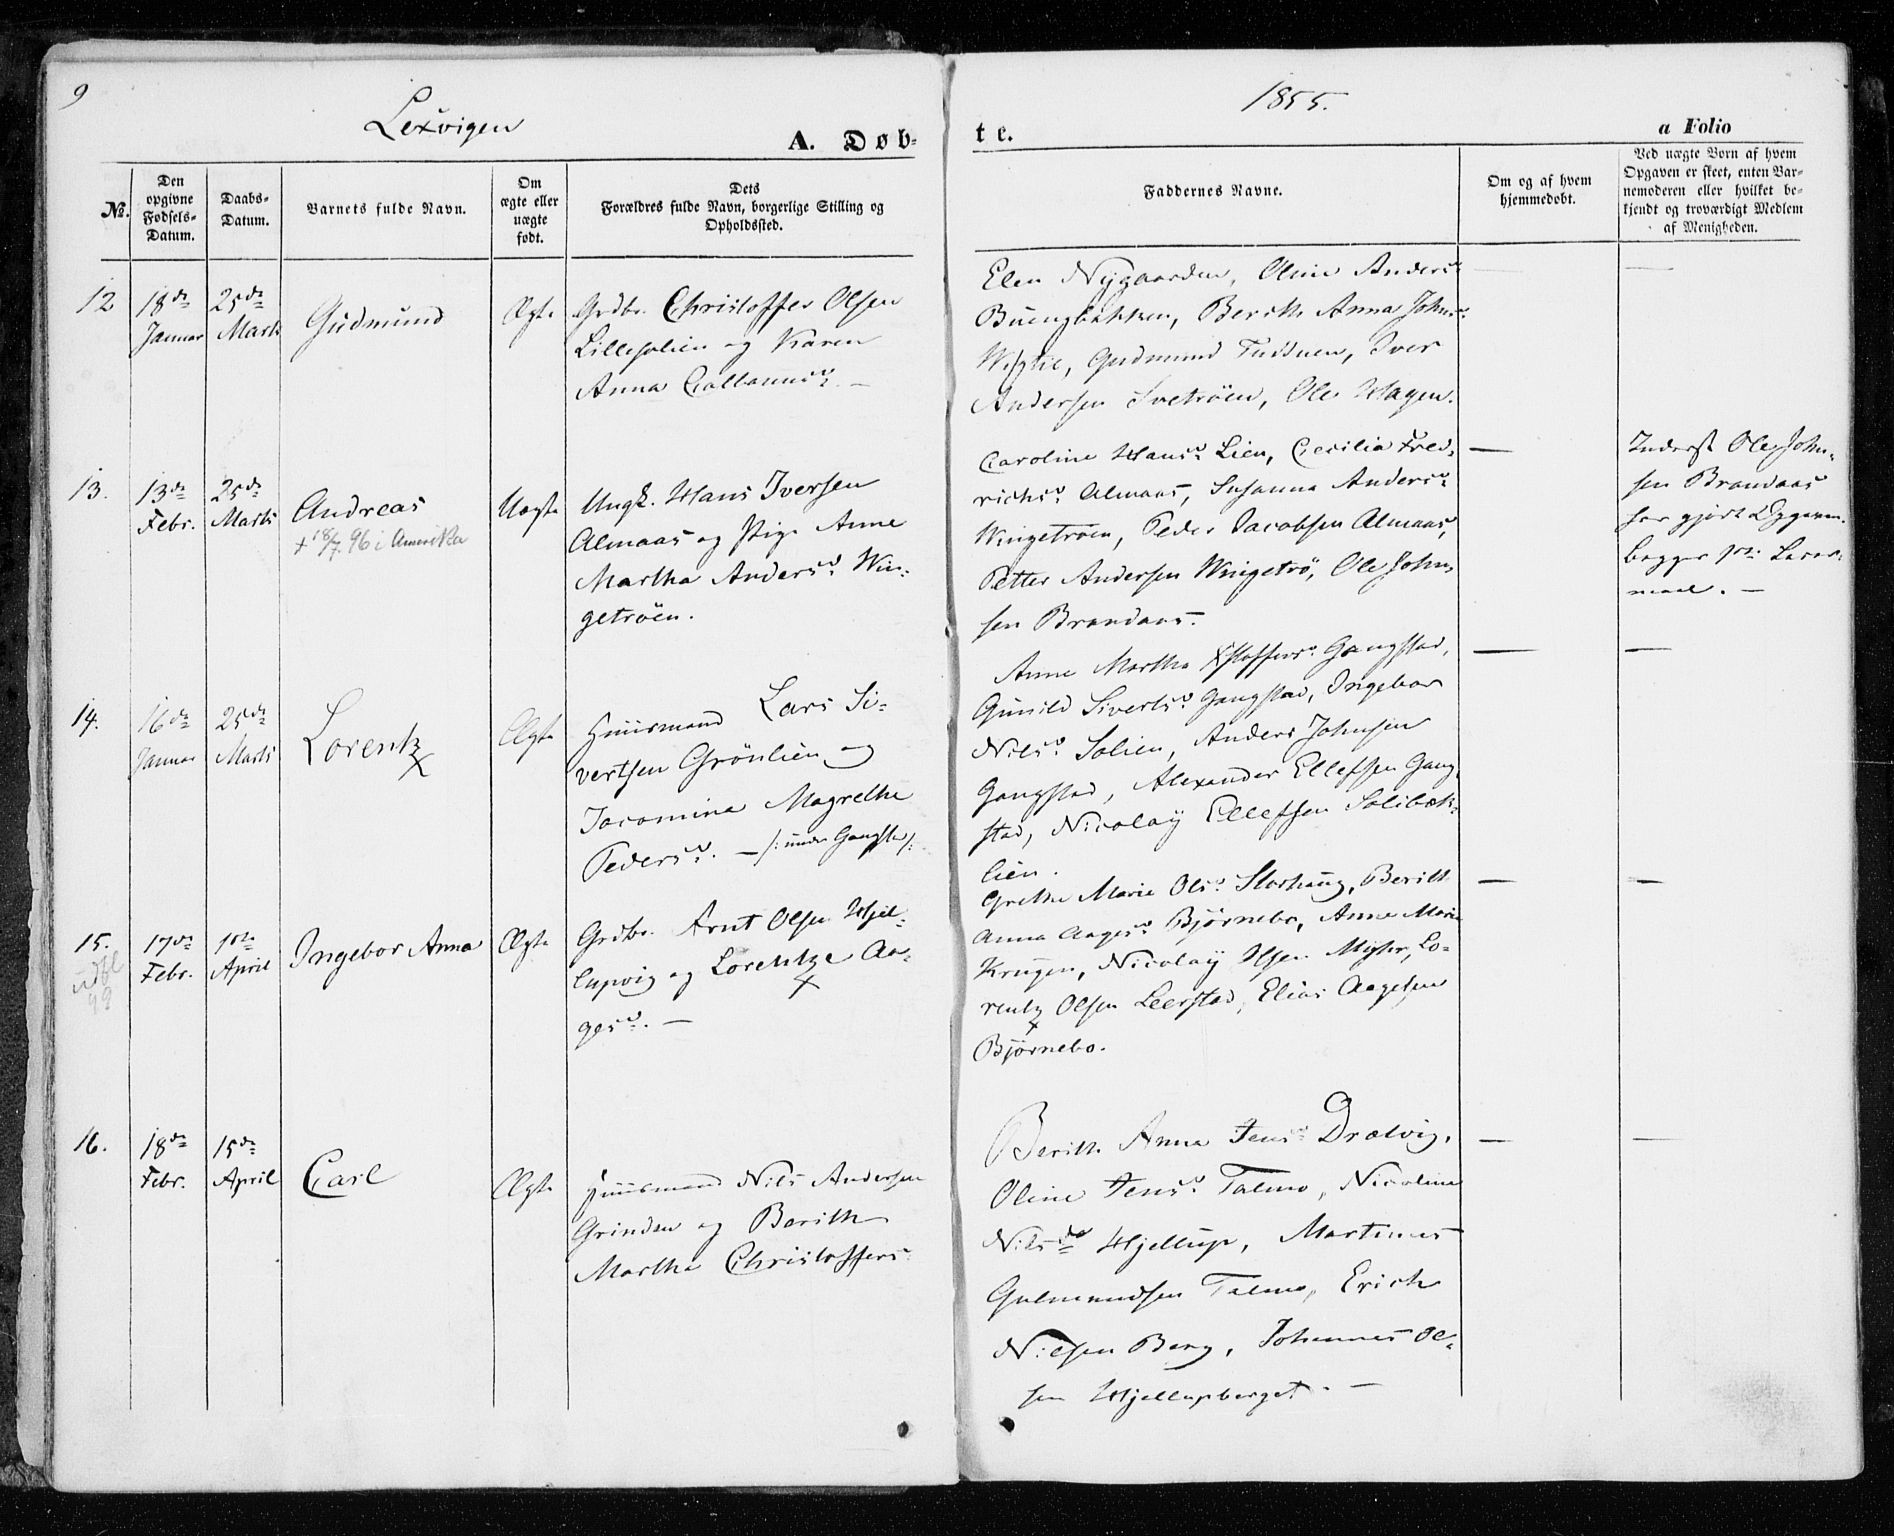 9
Lexvigen
1855.
A. Døb-
te.
a Folio
No.
Den opgivne Fødsels-Datum.
Daabs-Datum.
Barnets fulde Navn.
Om ægte eller uægte født.
Dets Forældres fulde Navn, borgerlige Stilling og Opholdssted.
Faddernes Navne.
Om og af hvem hjemmedøbt.
Ved uægte Børn af hvem Opgaven er skeet, enten Barnemoderen eller hvilket bekjendt og troværdigt Medlem af Menigheden.
12
18de Januar
25de Marts
Gudmund
Ægte
Grdbr. Christoffer Olsen
Lillesolien og Karen
Anna
Elen Nygaarden, Oline Andersd.
Buengbakken, Berith Anna Johnsd.
Gudmund Iver
Andersen Ole Hagen.
13.
13de Febr.
25de Marts
Andreas
+ 18/7 96 i Amerika
Uægte
Ungk. Hans Iversen
Almaas og Pige Anne
Martha Andersd. Win-
getrøen.
Caroline Hansd. Lien, Cecilia Fred-
richsd. Almaas, Susanna Andersd.
Wingetrøen, Peder Jacobsen Almaas,
Petter Andersen Wingetrø, Ole John-
sen Brandaas.
—
Inderst Ole John-
sen Brandaas
har gjort Opgaven.
Begges 1ste Leier-
maal. —
14.
16de Januar
25de Marts
Lorentz
x
Ægte
Huusmand Lars Si-
vertsen Grönlien og
Jacomina Magrethe
Pedersd. — /: under Gangstad :/
Anne Martha Xstoffersd. Gangstad,
Gunild Sivertsd. Gangstad, Ingebor
Nilsd. Solien, Anders Johnsen
Gangstad, Alexander Ellefsen Gang-
stad, Nicolaÿ Ellefsen Solibæk-
lien.
—
—
15.
udfl
99
17de Febr.
1ste April
Ingebor Anna
Ægte
Grdbr. Arnt Olsen Hjel-
lupvig og Lorentze Aa-
x
gesd. —
Grethe Marie Olsd. Storhaug, Berith
Anna Aagesd. Björnebo, Anne Marie
Krugen, Nicolaÿ Olsen Myhr, Lo-
rentz Olsen Leerstad, Elias Aagesen
x
Björnebo.
—
—
16.
18de Febr.
15de April
Carl
Ægte
Huusmand Nils Andersen
Grinden og Berith
Martha Christoffersd.
Berith Anna Jensd. Drætvig,
Oline Jensd. Talmo, Nicoline
Nilsd. Hjellup, Martinus
Gulmundsen Talmo, Erich
Nilsen Berg, Johannes Ol-
sen Hjellupberget. —
—
—